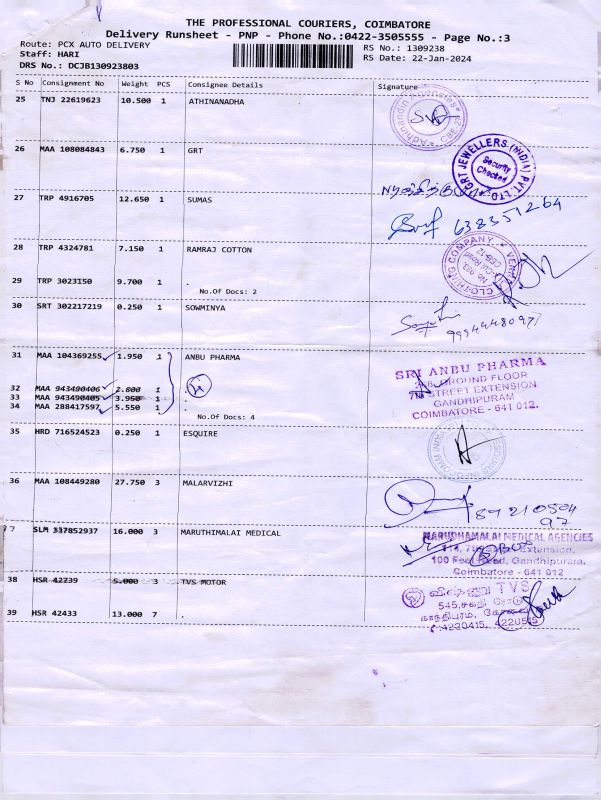 THE PROFESSIONAL COURIERS, COIMBATORE
Delivery Runsheet - PNP - Phone No.:0422-3505555 - Page No.:3
Route: PCX AUTO DELIVERY
RS No.: 1309238
Staff: HARI
RS Date: 22-Jan-2024
DRS No.: DCJB130923803
S No Consignment No Weight PCS Consignee Details Signature
25 TNJ 22619623 10.500 1 ATHINANADHA
26 MAA 108084843 6.750 1 GRT
GRT JEWELLERS (INDIA) PVT. LTD
Security
Checked
27 TRP 4916705 12.650 1 SUMAS
638351264
28 TRP 4324781 7.150 1 RAMRAJ COTTON
CLOTHING COMPANY
29 TRP 3023150 9.700 1 .
No.Of Docs: 2
30 SRT 302217219 0.250 1 SOWMINYA
31 MAA 104369255 1.950 1 ANBU PHARMA
SRI ANBU PHARMA
GROUND FLOOR
STREET EXTENSION
GANDHIPURAM
COIMBATORE - 641 012.
32 MAA 943490406 2.800 1 .
33 MAA 943490405 3.950 1 .
34 MAA 288417597 5.550 1 .
No.Of Docs: 4
35 HRD 716524523 0.250 1 ESQUIRE
36 MAA 108449280 27.750 3 MALARVIZHI
97
37 SLM 337852937 16.000 3 MARUTHIMALAI MEDICAL
MARUDHAMALAI MEDICAL AGENCIES
Extension,
100 Feet Road, Gandhipuram,
Coimbatore - 641 012
38 HSR 42739 5.000 3 TVS MOTOR
விஷ்ணு TVS
545, சக்தி ரோடு
காந்திபுரம், கோவை
4220415, 4220515
39 HSR 42433 13.000 7 .